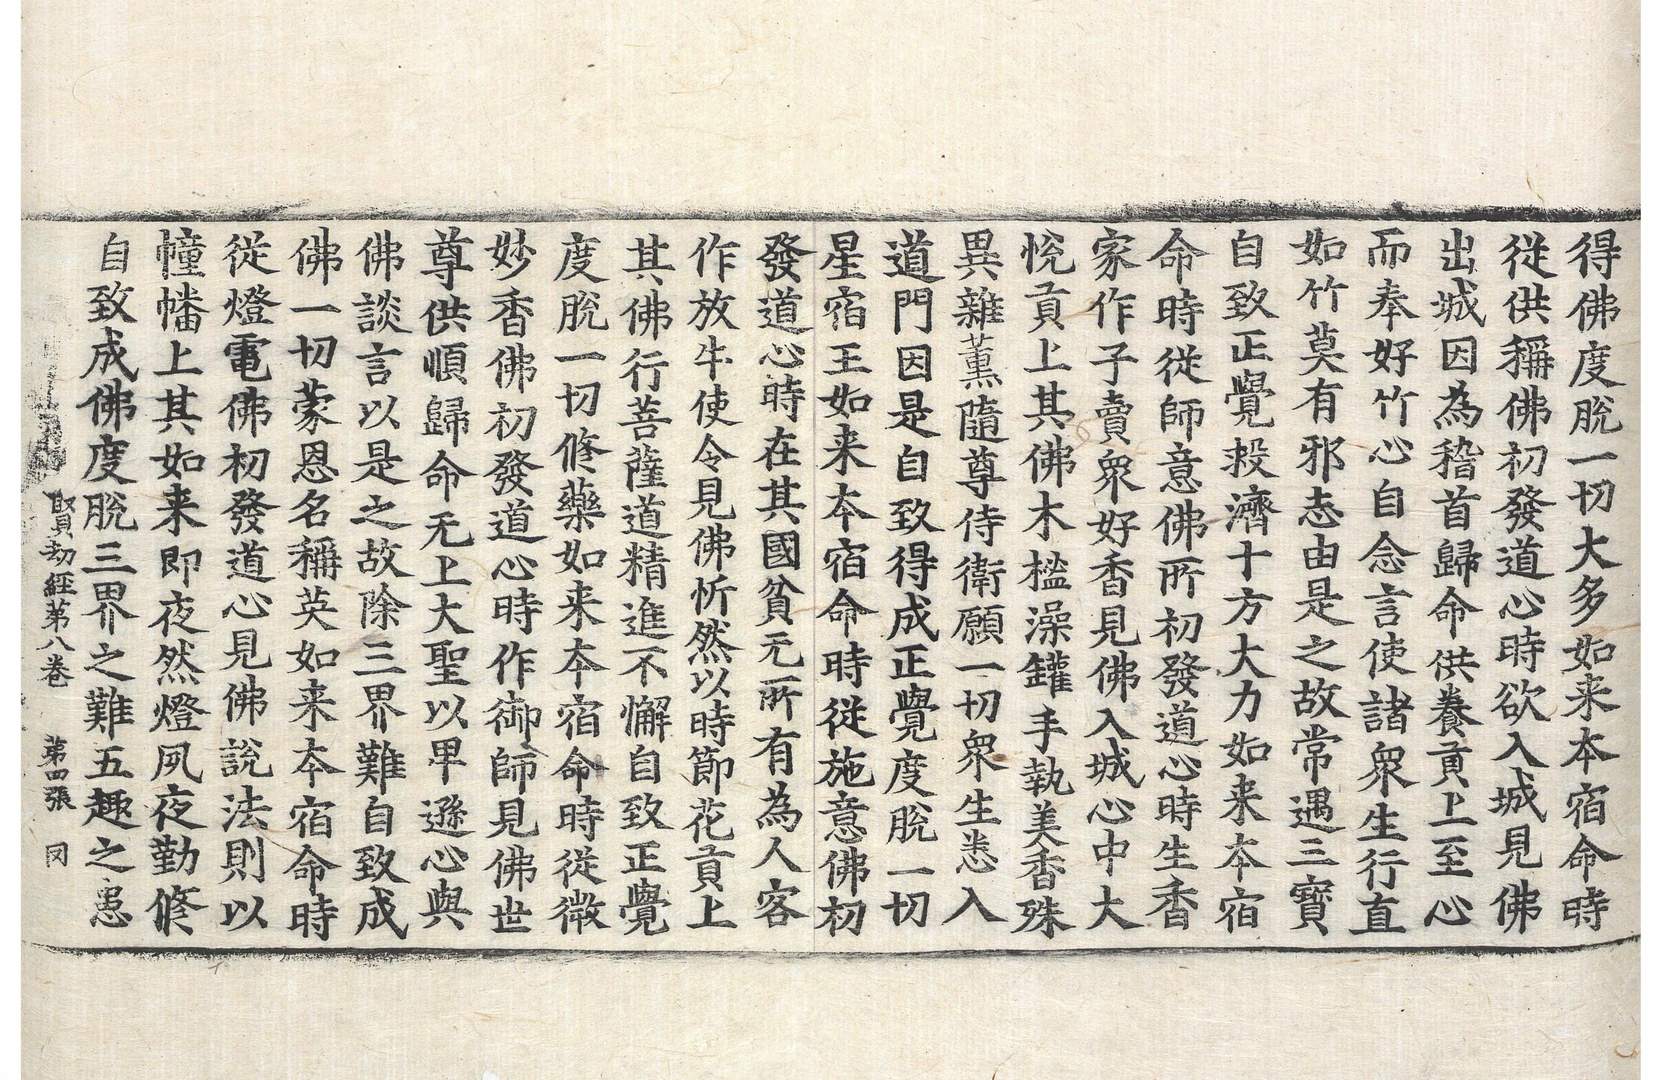 得佛度脫一切大多如来本宿命時
從供稱佛初發道心時欲入城見佛
出城因為稽首歸命供養貢上至心
而奉好竹心自念言使諸衆生行直
如竹莫有邪志由是之故常遇三寶
自致正覺救濟十方大力如来本宿
命時從師意佛所初發道心時生香
家作子賣衆好香見佛入城心中大
悅貢上其佛木檻澡罐手執美香殊
異雜薰隨尊侍衛願一切衆生悉入
道門因是自致得成正覺度脫一切
星宿王如来本宿命時從施意佛初
發道心時在其國貧无所有為人客
作放牛使令見佛忻然以時節花貢上
其佛行菩薩道精進不懈自致正覺
度脫一切修藥如来本宿命時從微
妙香佛初發道心時作御師見佛世
尊供順歸命无上大聖以卑遜心與
佛談言以是之故除三界難自致成
佛一切蒙恩名稱英如来本宿命時
從燈電佛初發道心見佛說法則以
幢幡上其如来即夜然燈夙夜勤修
自致成佛度脫三界之難五趣之患
賢劫經第八卷 第四張 罔